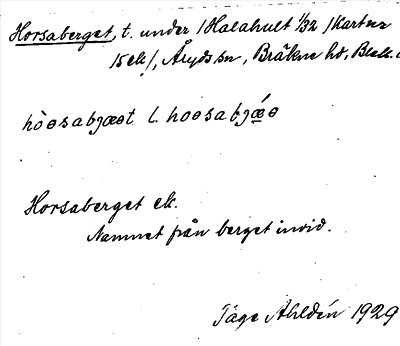 Horsaberget, t. under /Halahult 1/32 /Kartur
15 ek/, Åryds sn, Bräkne hd, Blek.
hòɵsabjæɵt l. hoɵsabjǽɵ
Horsaberget ek.
Namnet från berget invid.
Tage Ahldén 1929